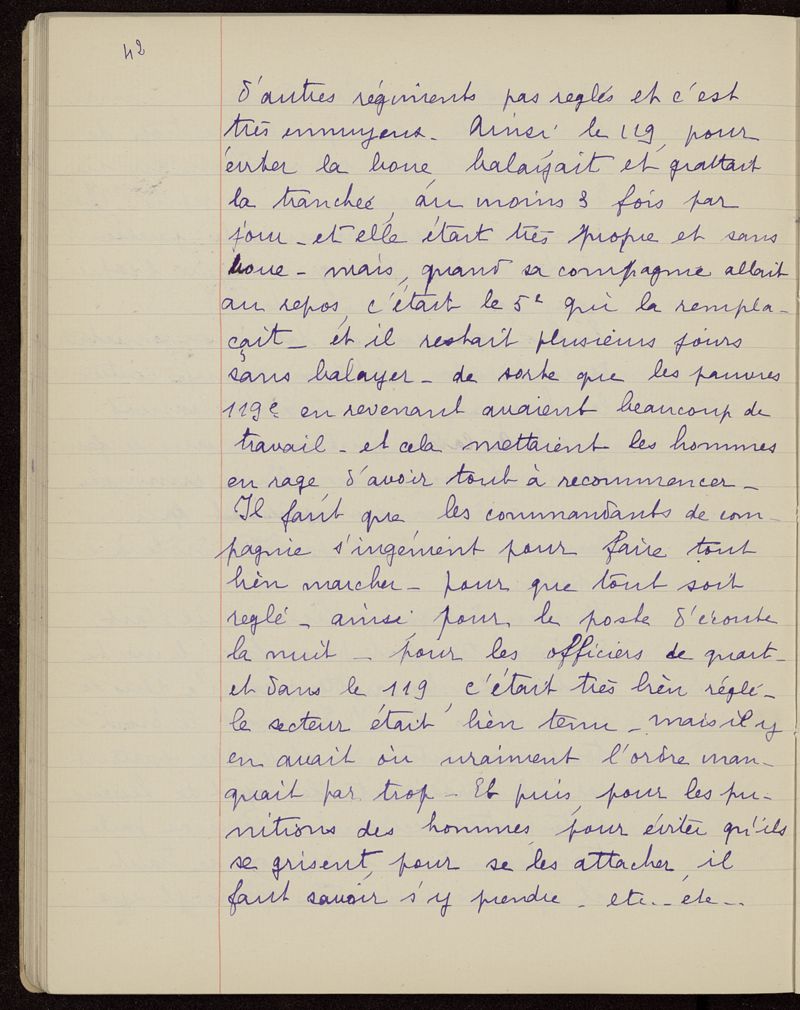 42
d'autres régiments pas reglés et c'est
très ennuyeux. Ainsi le 119, pour
éviter la boue, balayait et grattait
la tranchée, au moins 3 fois par
jour - et elle était très propre et sans
boue - mais, quand sa compagnie allait
au repos, c'était le 5e qui la rempla-
çait - et il restait plusieurs jours
sans balayer - de sorte que les pauvres
119e en revenant avaient beaucoup de
travail - et cela mettaient les hommes
en rage d'avoir tout à recommencer -
Il faut que les commandants de com-
pagnie s'ingénient pour faire tout
bien marcher - pour que tout soit
reglé - ainsi pour le poste d'écoute
la nuit - pour les officiers de quart -
et dans le 119, c'était très bien réglé -
le secteur était bien tenu - mais il y
en avait où vraiment l'ordre man-
quait par trop - Et puis, pour les pu-
nitions des hommes, pour éviter qu'ils
se grisent, pour se les attacher, il
faut savoir s'y prendre - etc... etc...